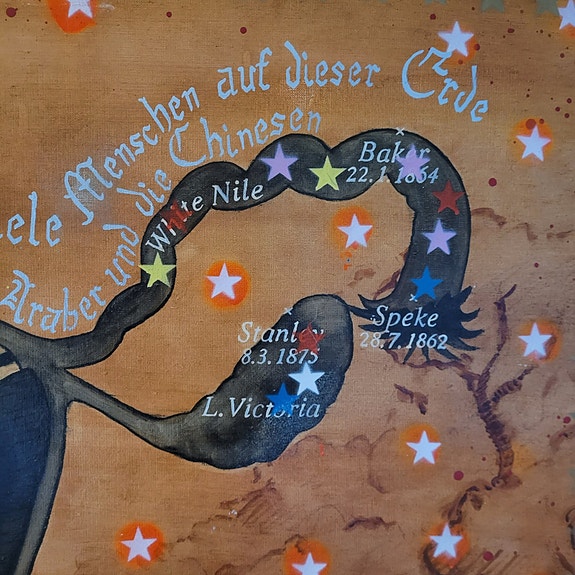 ele Menschen auf dieser Erde
Araber und die Chinesen
White Nile
Baker
22.1.1864
Stanley
8.3.1875
Speke
28.7.1862
L. Victoria